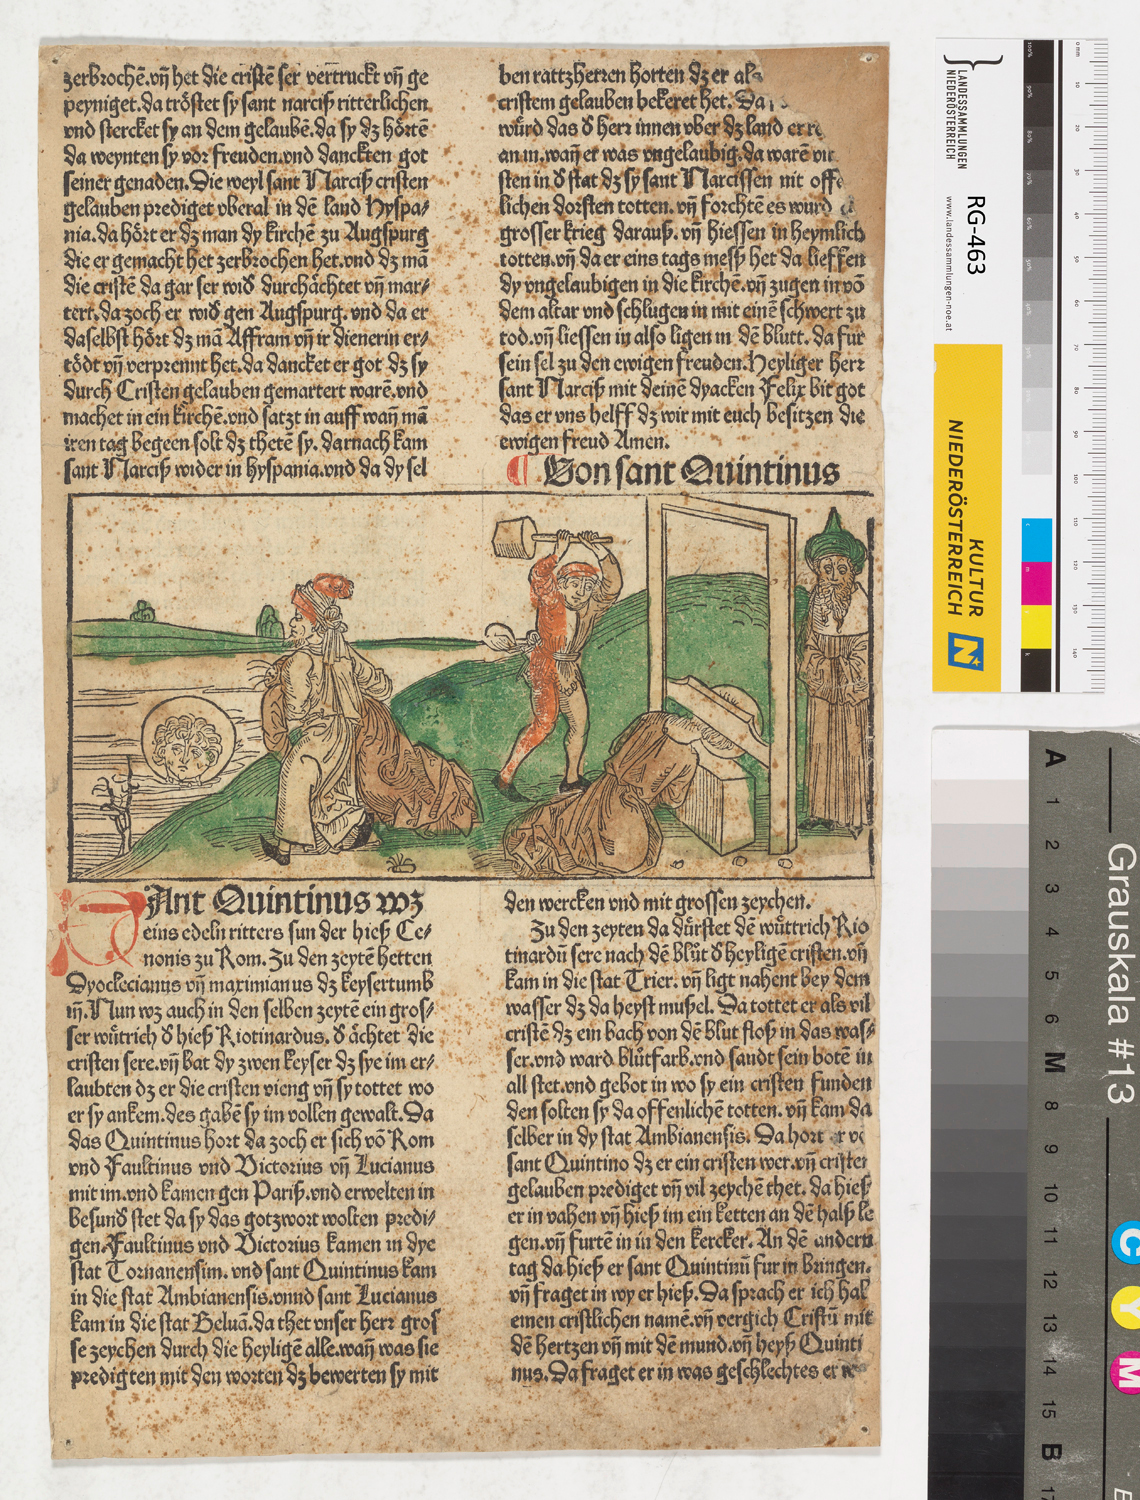 zerbrochē.vñ het die cristē ser vertruckt vñ ge
peyniget.da tröstet sy sant narciß ritterlichen
vnd stercket sy an dem gelaubē.da sy dz hörtē
da weynten sy vor freuden.vnd danckten got
seiner genaden.Die weyl sant Narciß cristen
gelauben prediget vberal in dē land Hyspa/
nia.da hört er dz man dy kirchē zu Augspurg
die er gemacht het zerbrochen het.vnd dz mā
die cristē da gar ser wid durchächtet vñ mar/
tert.da zoch er wid gen Augspurg. vnd da er
daselbst hört dz mā Affram vñ ir dienerin er/
tödt vñ verprennt het.da dancket er got dz sy
durch Cristen gelauben gemartert warē.vnd
machet in ein kirchē.vnd satzt in auff wañ mā
iren tag begeen solt dz thetē sy. darnach kam
sant Narciß wider in hyspania.vnd da dy sel
ben rattzherren horten dz er als
cristem gelauben bekeret het. Da
würd das d herr innen vber dz land
an in.wañ er was vngelaubig.da warē
sten in d stat dz sy sant Narcissen nit
lichen dorsten totten. vñ forchtē es wurd
grosser krieg darauß. vñ hiessen in heymlich
totten.vñ da er eins tags meß het da lieffen
dy vngelaubigen in die kirchē.vñ zugen in vō
dem altar vnd schlugen in mit einē schwert zu
tod.vñ liessen in also ligen in dē blutt. da fur
sein sel zu den ewigen freuden.Heyliger herr
sant Narciß mit deinē dyacken Felix bit got
das er vns helff dz wir mit euch besitzen die
ewigen freud Amen.
¶ Von sant Quintinus
SAnt Quintinus wz
eins edeln ritters sun der hieß Ce/
nonis zu Rom. Zu den zeytē hetten
Dyoclecianus vñ maximianus dz keysertumb
iñ. Nun wz auch in den selben zeytē ein gros/
ser wütrich d hieß Riotinardus. d ächtet die
cristen sere.vñ bat dy zwen keyser dz sye im er/
laubten dz er die cristen vieng vñ sy tottet wo
er sy ankem.des gabē sy im vollen gewalt. Da
das Quintinus hort da zoch er sich vō Rom
vnd Faustinus vnd Victorius vñ Lucianus
mit im.vnd kamen gen Pariß.vnd erwelten in
besund stet da sy das gotzwort wolten predi/
gen.Faustinus vnd Victorius kamen in dye
stat Tornanensim. vnd sant Quintinus kam
in die stat Ambianensis.vnnd sant Lucianus
kam in die stat Beluā.da thet vnser herr gros
se zeychen durch die heyligē alle.wañ was sie
predigten mit den worten dz bewerten sy mit
den wercken vnd mit grossen zeychen.
Zu den zeyten da dürstet dē wüttrich Rio
tinardū sere nach dē blüt d heyligē cristen.vñ
kam in die stat Trier. vñ ligt nahent bey dem
wasser dz da heyst mußel. Da tottet er als vil
cristē dz ein bach von dē blut floß in das was/
ser.vnd ward blütfarb.vnd sandt sein botē in
all stet.vnd gebot in wo sy ein cristen funden
den solten sy da offenlichē totten. vñ kam da
selber in dy stat Ambianensis. Da hort er
sant Quintino dz er ein cristen wer.vñ cristen
gelauben prediget vñ vil zeychē thet. da hieß
er in vahen vñ hieß im ein ketten an dē halß le
gen.vñ furtē in in den kercker. An dē andern
tag da hieß er sant Quintinū fur in bringen.
vñ fraget in wy er hieß. Da sprach er ich hab
einen cristlichen namē.vñ vergich Cristū mit
dē hertzen vñ mit dē mund.vñ heyß Quinti
nus. Da fraget er in was geschlechtes er
LANDESSAMMLUNGEN
NIEDERÖSTERREICH
www.landessammlungen-noe.at
RG-463
KULTUR
NIEDERÖSTERREICH
N
Grauskala #13
A
1
2
3
4
5
6
M
8
9
10
11
12
13
14
15
B
C
Y
M